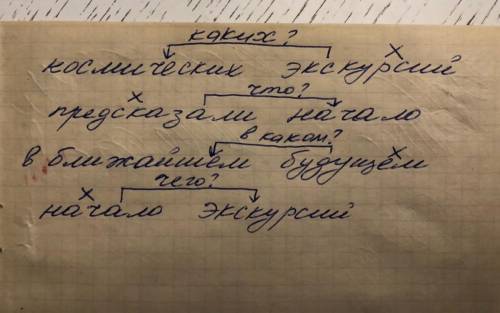 каких?
космических экскурсий
что?
предсказали начало
в каком?
в ближайшем будущем
чего?
начало экскурсий